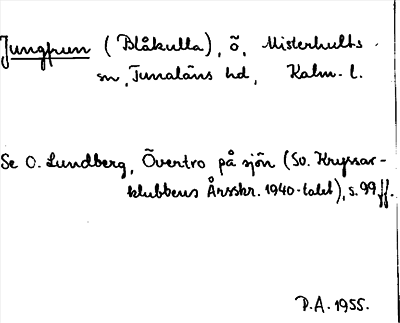 Jungfrun (Blåkulla), ö, Misterhults
sn, Tunaläns hd, Kalm. l.
Se O. Lundberg, Övertro på sjön (Sv. Kryssar-
klubbens Årsskr. 1940-talet), s. 99 ff.
D.A. 1955.